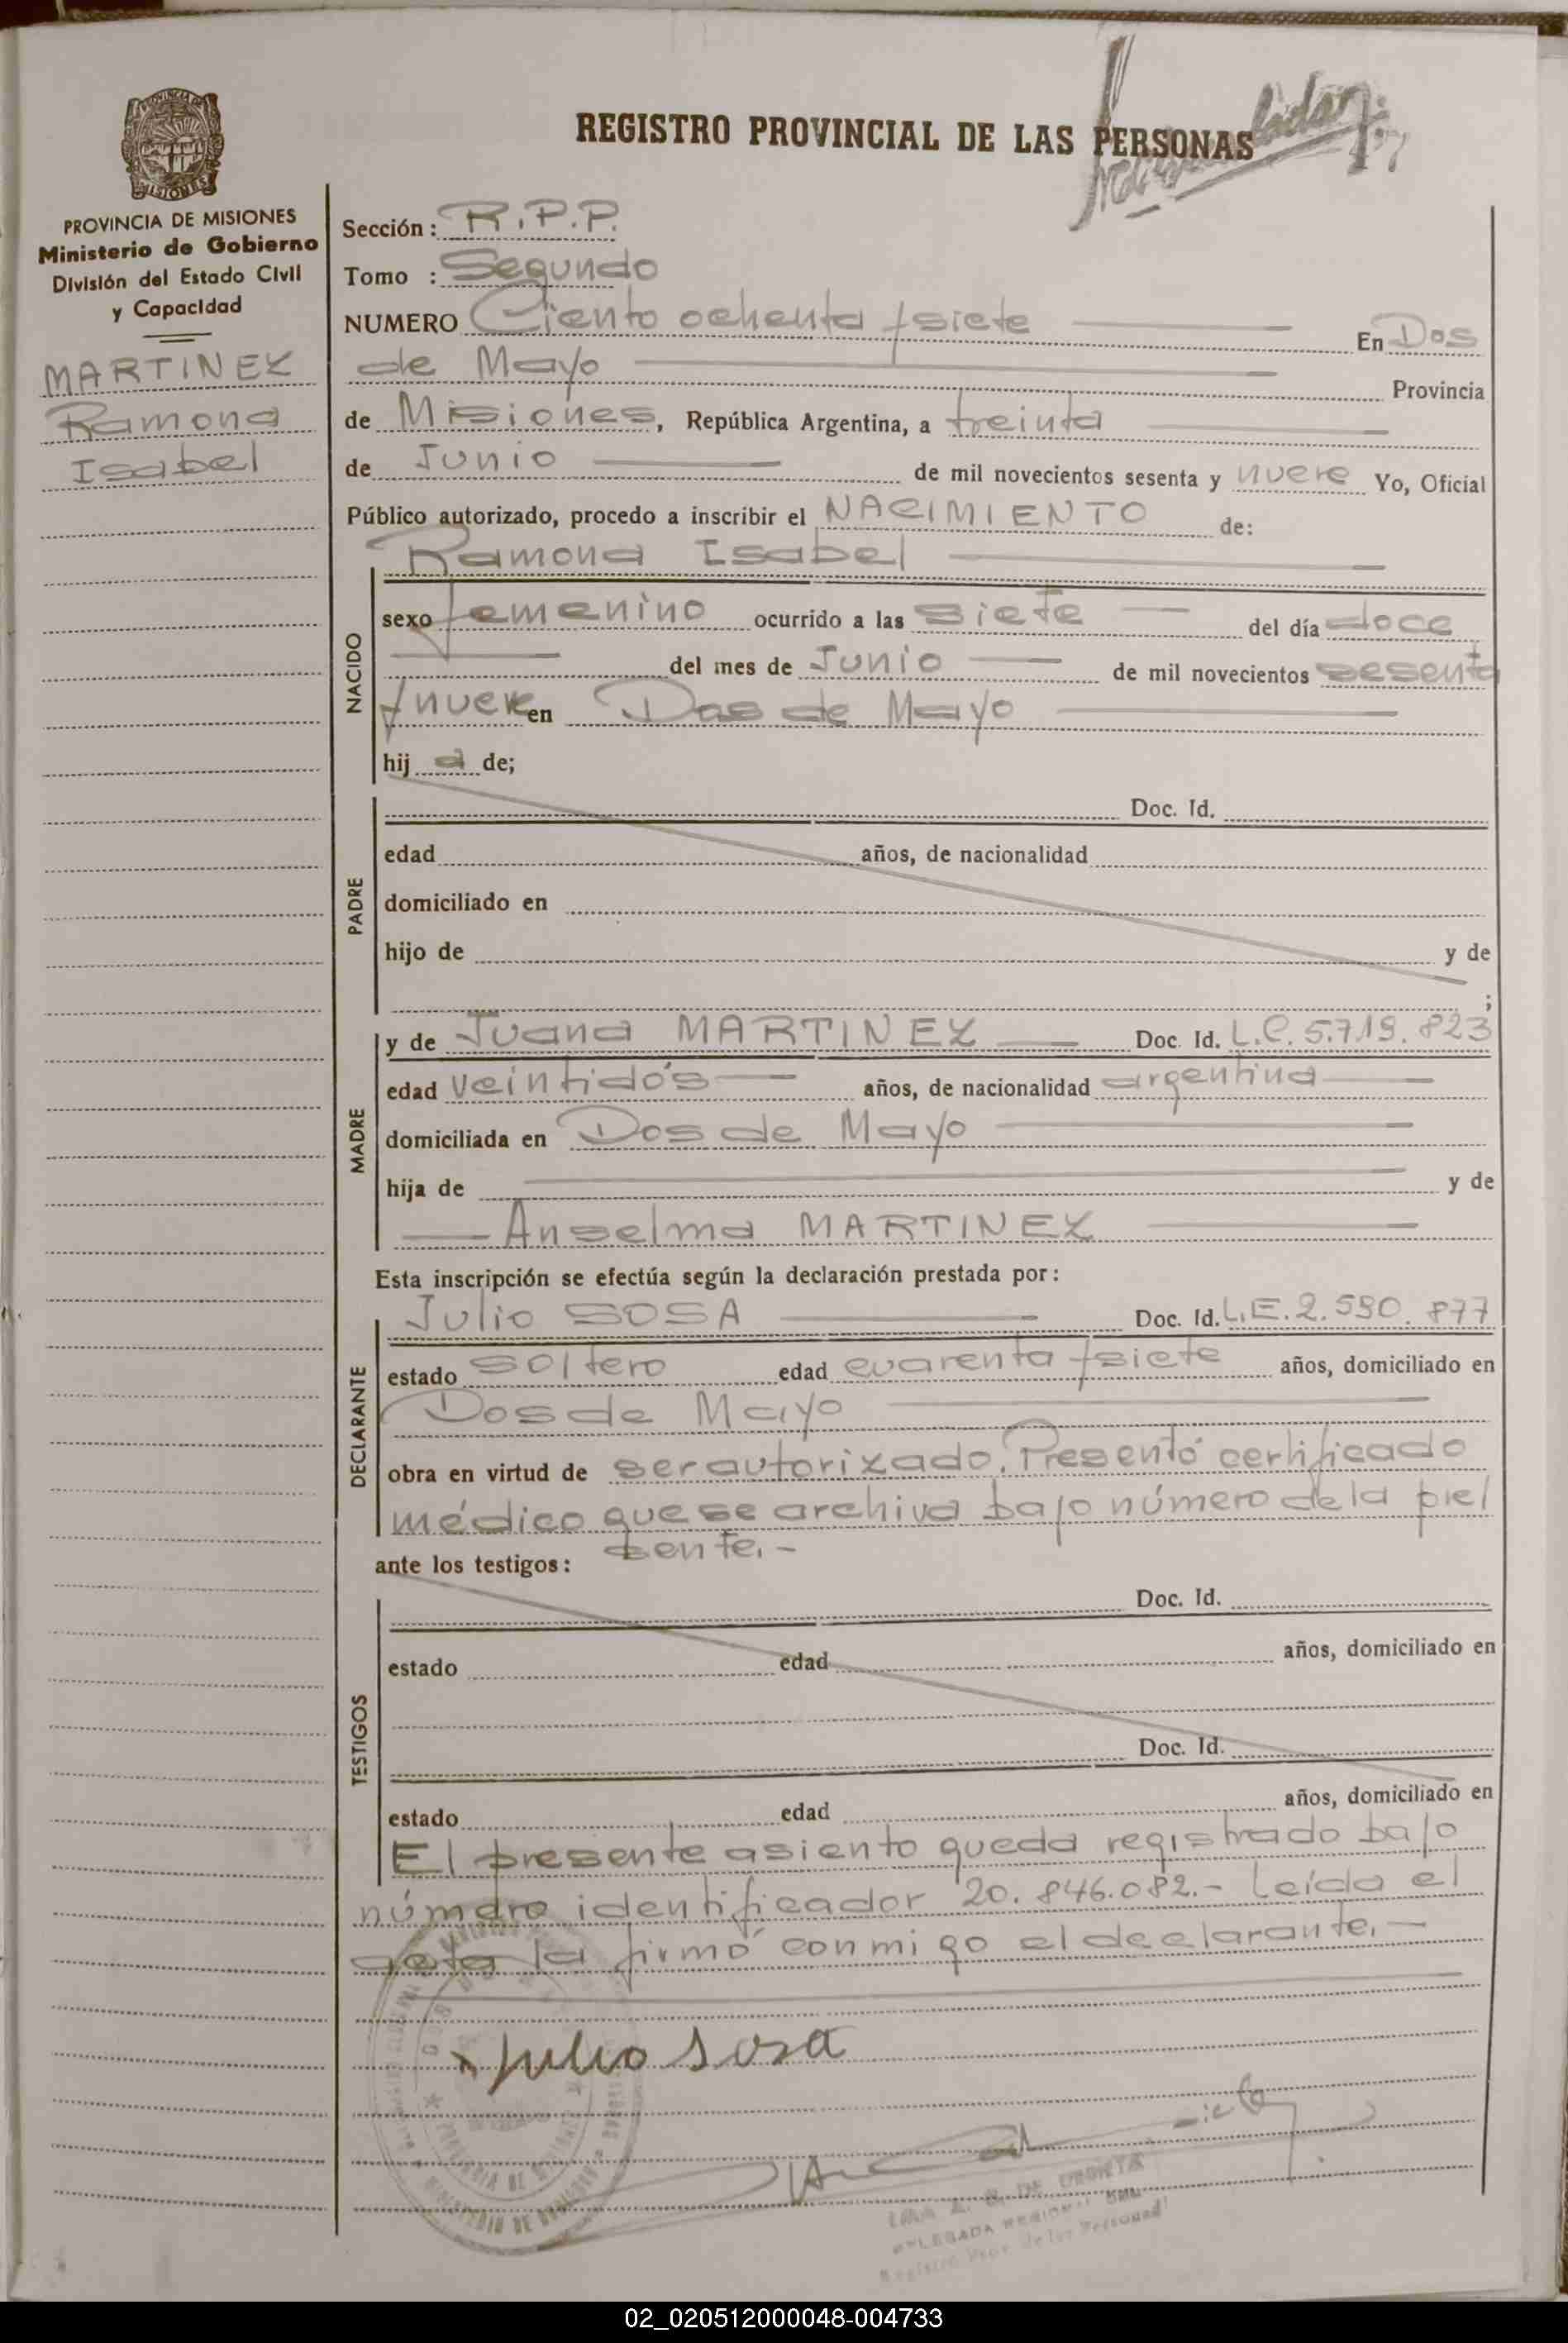 REGISTRO PROVINCIAL DE LAS PERSONAS
PROVINCIA DE MISIONES
Ministerio de Gobierno
División del Estado Civil
y Capacidad
MARTINEZ
Ramona
Isabel
Sección: R.P.P.
Tomo : Segundo
NUMERO Ciento ochenta y siete En Dos
de Mayo Provincia
de Misiones, República Argentina, a treinta
de Junio de mil novecientos sesenta y nueve Yo, Oficial
Público autorizado, procedo a inscribir el NACIMIENTO de:
Ramona Isabel
NACIDO
sexo femenino ocurrido a las siete del día doce
del mes de Junio de mil novecientos sesenta
y nueve en Dos de Mayo
hij a de;
PADRE
Doc. Id.
edad años, de nacionalidad
domiciliado en
hijo de y de
;
MADRE
y de Juana MARTINEZ Doc. Id. L.C. 5.719.823
edad veintidós años, de nacionalidad argentina
domiciliada en Dos de Mayo
hija de y de
Anselma MARTINEZ
Esta inscripción se efectúa según la declaración prestada por:
DECLARANTE
Julio SOSA Doc. Id. L.E. 2.590.877
estado soltero edad cuarenta y siete años, domiciliado en
Dos de Mayo
obra en virtud de ser autorizado. Presentó certificado
médico que se archiva bajo número de la pre/
sente.-
ante los testigos:
TESTIGOS
Doc. Id.
estado edad años, domiciliado en
Doc. Id.
estado edad años, domiciliado en
El presente asiento queda registrado bajo
número identificador 20.846.082.- Leída el
acta la firmó conmigo el declarante.-
x julio sosa
DE URRIETA
DELEGADA REGIONAL
Registro Prov. de las Personas
02_020512000048-004733